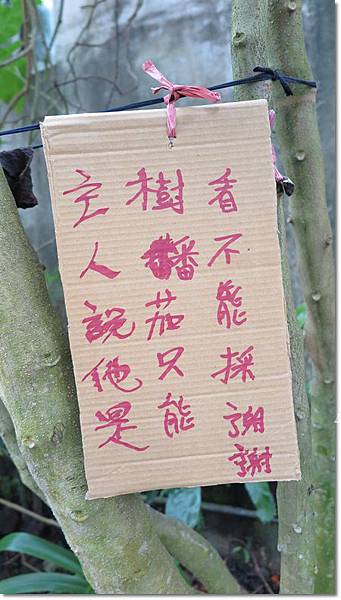 主人說他是
樹番茄只能
看不能採謝謝